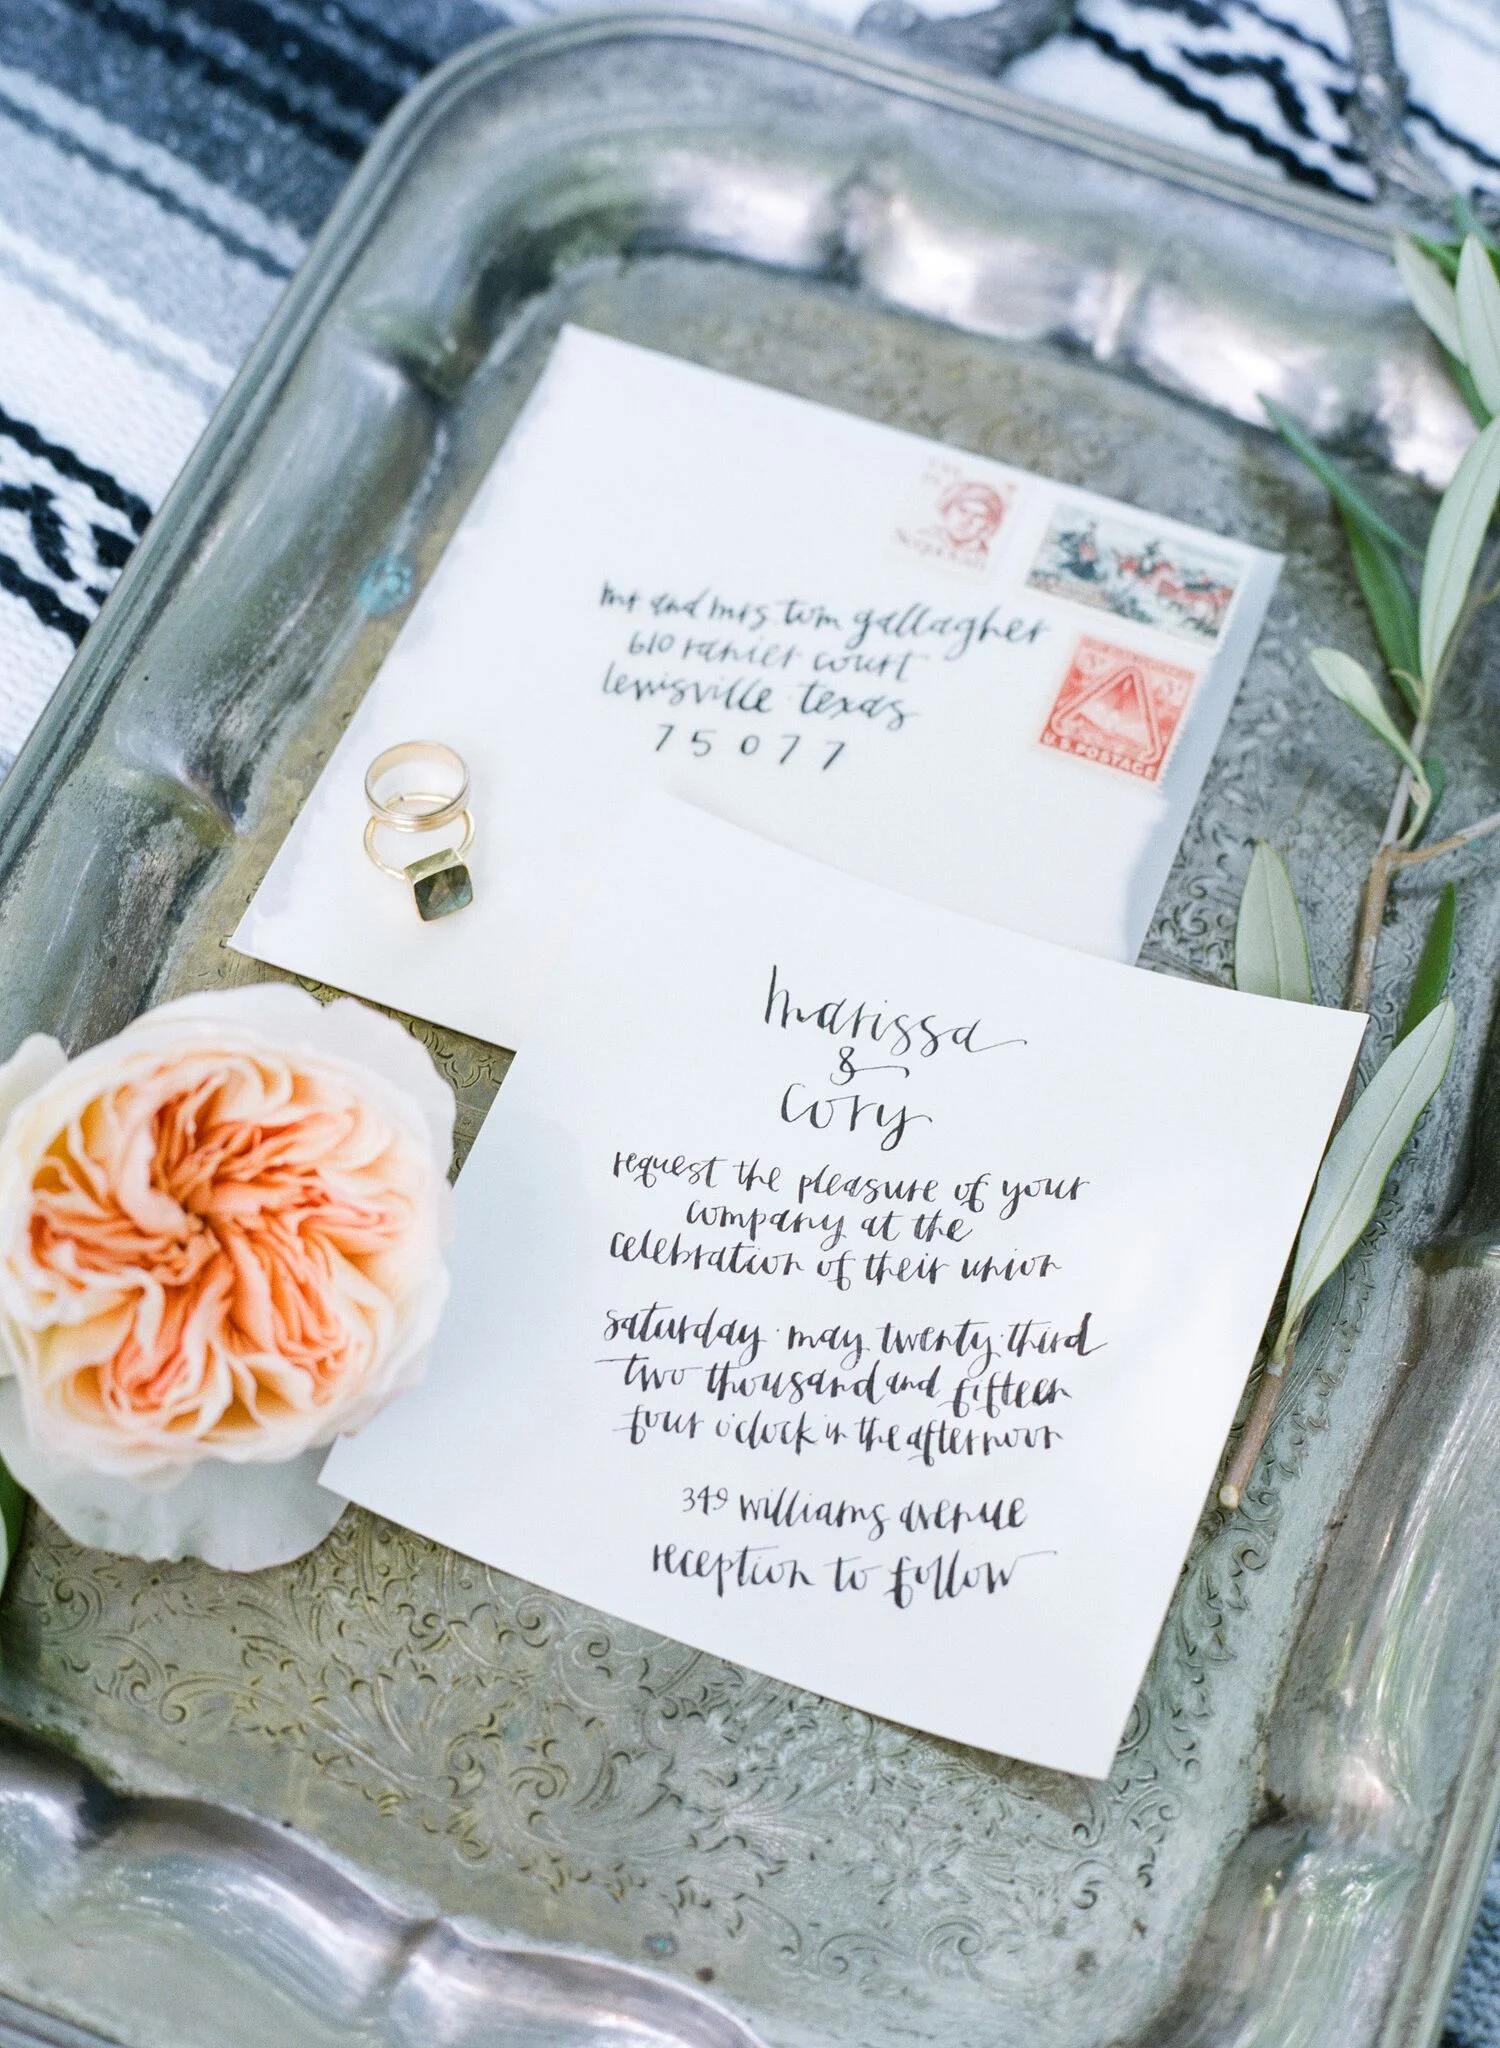 mr and mrs tom gallagher
610 ranier court
lewisville · texas
75077
U.S. POSTAGE
marissa
&
cory
request the pleasure of your
company at the
celebration of their union
saturday · may twenty · third
two thousand and fifteen
four o'clock in the afternoon
349 williams avenue
reception to follow